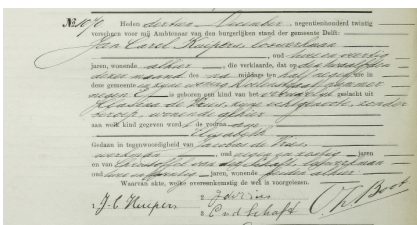 No 1070 Heden dertien November, negentienhonderd twintig
verscheen voor mij Ambtenaar van den burgerlijken stand der gemeente Delft:
Jan Carel Kuipers, loswerkman
, oud twee en veertig
jaren, wonende alhier, die verklaarde, dat op den twaalfden
dezer maand des na middags ten half negen ure in
deze gemeente in zijne woning
negen is geboren een kind van het vrouwelijk geslacht uit
de Vries, zijne echtgenoote, zonder
beroep, wonende alhier
aan welk kind gegeven werd de voornaam
Elisabeth
Gedaan in tegenwoordigheid van Jacobus de Vries,
werkman, oud zestig jaren
en van van der Schaft, werkman
oud jaren, wonende beiden alhier
Waarvan akte, welke overeenkomstig de wet is voorgelezen.
1 J. C. Kuipers 2 J de Vries
3 C v d Schaft